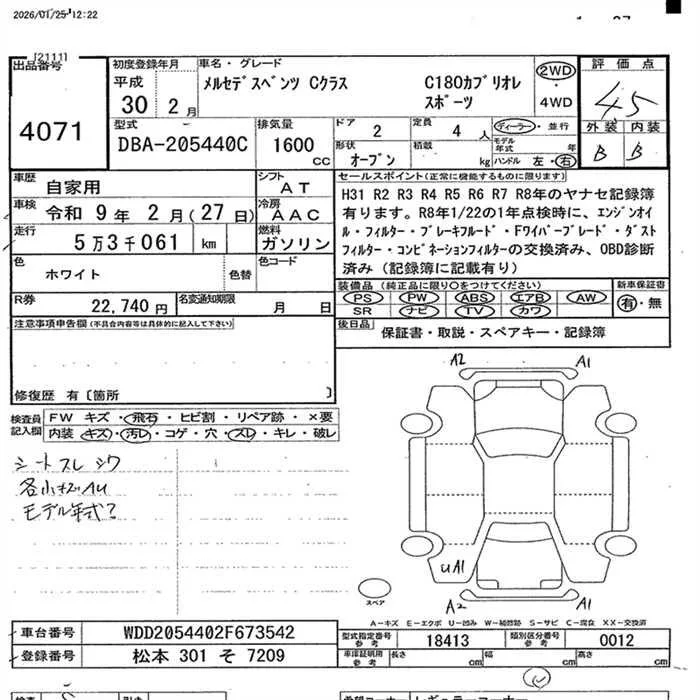 2026/01/25 12:22
[2111]
出品番号
4071
初度登録年月
平成
30 2 月
車名・グレード
メルセデスベンツ Cクラス C180カブリオレ
スポーツ
2WD
・
4WD
評価点
4.5
外装 内装
B B
型式
DBA-205440C
排気量
1600
cc
ドア
2
定員
4 人
ディーラー・並行
モデル
年式 年
形状
オープン
積載
kg
ハンドル 左・右
車歴
自家用
シフト
AT
車検
令和 9 年 2 月(27 日)
冷房
AAC
走行
5万3千061 km
燃料
ガソリン
色
ホワイト
色替
色コード
R券
22,740 円
名変通知期限
月 日
セールスポイント(正常に機能するものに限ります)
H31 R2 R3 R4 R5 R6 R7 R8年のヤナセ記録簿
有ります。R8年1/22の1年点検時に、エンジンオイ
ル・フィルター・ブレーキフルード・ドワイパーブレード・ダスト
フィルター・コンビネーションフィルターの交換済み、OBD診断
済み(記録簿に記載有り)
装備品(純正品に限り○をつけてください)
PS PW ABS エアB AW
SR ナビ TV カワ
新車保証書
有・無
後日品
保証書・取説・スペアキー・記録簿
注意事項申告欄(不具合内容等は具体的に記入して下さい)
修復歴 有〔箇所 〕
検査員
記入欄
FW キズ・飛石・ヒビ割・リペア跡・×要
内装 キズ・汚レ・コゲ・穴・スレ・キレ・破レ
シートスレ シワ
各小キズAU
モデル年式?
A2 A1
UA1
A2 A1
スペア
A-キズ E-エクボ U-凹み W-補修跡 S-サビ C-腐食 XX-交換済
車台番号
WDD2054402F673542
登録番号
松本 301 そ 7209
型式指定番号
参考
18413
類別区分番号
参考
0012
車庫証明用
参考
長さ cm 幅 cm 高さ cm